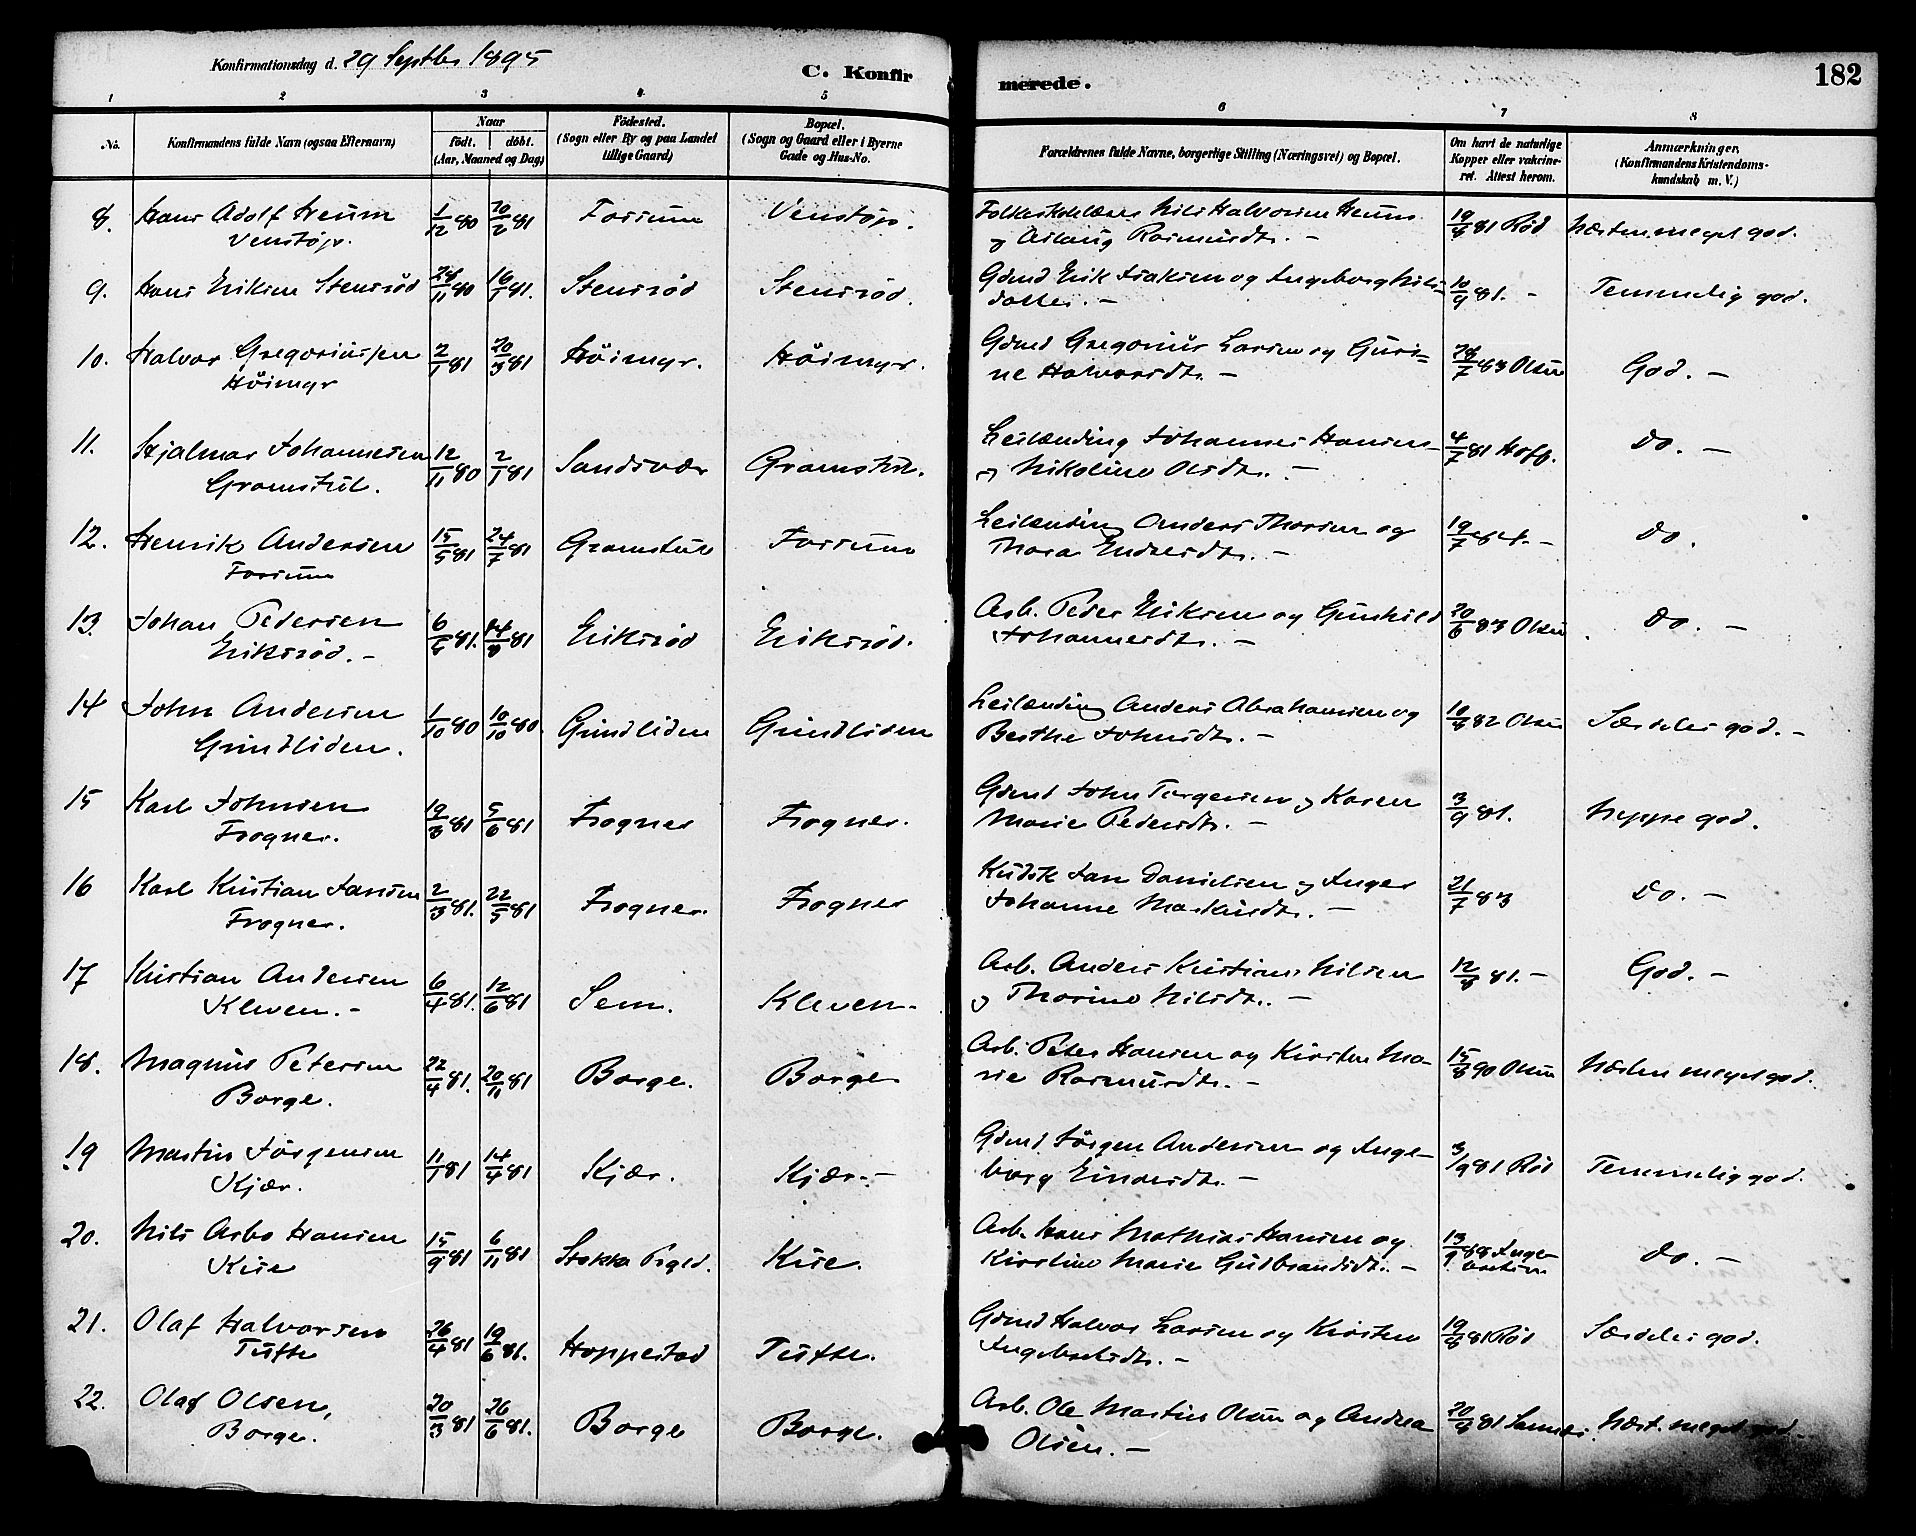 Konfirmationsdag d. 29 Septbr 1895
C. Konfir
merede.
182
1 2 3 4 5 6 7 8
No. Konfirmandens fulde Navn (ogsaa Efternavn) Naar födt. döbt. (Aar, Maaned og Dag) Födested. (Sogn eller By og paa Landet tillige Gaard) Bopæl. (Sogn og Gaard eller i Byerne Gade og Hus-No. Forældrenes fulde Navne, borgerlige Stilling (Næringsvei) og Bopæl. Om havt de naturlige Kopper eller vakcineret. Attest herom. Anmærkninger, (Konfirmandens Kristendomskundskab m. V.)
8. Hans Adolf Heum 1/12 80 20/2 81 Fossum Venstøp. Folkeskolelærer Nils Halvorsen Heum 19/8 81 Rød Næsten meget god.
Venstøp. og Aslaug Rasmusdtr. —
9. Hans Eriksen Stensrød 24/11 80 16/1 81. Stensrød Stensrød. Gdmd Erik Isaksen og Ingeborg Nils- 10/9 81. - Temmelig god.
datter. —
10. Halvor Gregoriussen 2/1 81 20/3 81 Høimyr. Høimyr. Gdmd Gregorius Larsen og Guri= 28/7 83 Olsen God. —
Høimyr ne Halvorsdtr. —
11. Hjalmar Johannesen 12/11 80 2/1 81 Sandsvær Gramstul. Leilænding Johannes Hansen 4/7 81 Hoff. Do. —
Gramstul. og Nikoline Olsdtr. —
12. Henrik Andersen 15/5 81 24/7 81 Gramstul Fossum Leilænding Anders Thorsen og 19/7 84. - Do.
Fossum Thora Endresdtr. —
13. Johan Pedersen 6/5 81. 14/8 81 Eriksrød Eriksrød. Arb. Peder Eriksen og Gunhild 20/6 83 Olsen. Do. —
Eriksrød. - Johannesdtr. —
14 John Andersen 1/10 80 10/10 80. Grindliden Grindliden Leilænding Anders Abrahamsen og 10/8 82 Olsen Særdeles god. —
Grindliden. Berthe Johnsdtr. —
15 Karl Johnsen 19/3 81 5/6 81 Frogner Frogner. Gdmd John Torgersen og Karen 3/9 81. Neppe god.
Frogner. Marie Pedersdtr. —
16 Karl Kristian Jansen 2/3 81. 22/5 81 Frogner. Frogner Kudsk Jan Danielsen og Inger 21/7 83 Do. —
Frogner. Johanne Markusdtr. —
17 Kristian Andersen 6/4 81. 12/6 81 Sem. Kleven. Arb. Anders Kristian Nilsen 12/8 81. - God. —
Kleven. - og Thorine Nilsdtr. —
18. Magnus Petersen 22/4 81. 20/11 81 Borge. Borge Arb. Peter Hansen og Kirsten Ma- 15/8 90 Olsen Næsten meget god.
Borge. rie Rasmusdtr. —
19 Martin Jørgensen 11/1 81 14/4 81 Kjær. Kjær. - Gdmd Jørgen Andersen og Inge- 3/9 81 Rød Temmelig god.
Kjær. borg Einersdtr. —
20. Nils Arbo Hansen 15/9 81 6/11 81 Stokke Prgld. Kise. Arb. Hans Mathias Hansen og 13/9 88 Inge- Do. —
Kise Kirstine Marie Gulbrandsdtr. — bretsen
21. Olaf Halvorsen 26/4 81 19/6 81. Hoppestad Tufte. Gdmd Halvor Larsen og Kirsten 19/8 81 Rød Særdeles god.
Tufte Ingebretsdtr. —
22. Olaf Olsen, 20/3 81 26/6 81. Borge Borge. Arb. Ole Martin Olsen og Andrea 20/8 81 Næst. meget god.
Borge. Olsen. —